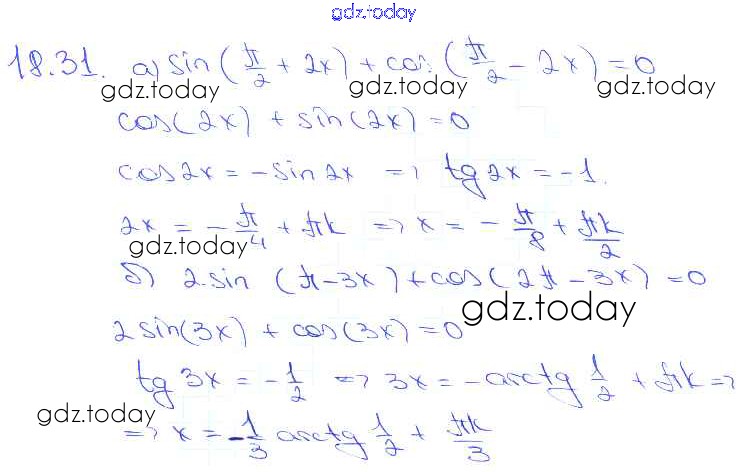 gdz.today
18.31. а) sin(π/2 + 2x) + cos(π/2 - 2x) = 0
gdz.today gdz.today gdz.today
cos(2x) + sin(2x) = 0
cos2x = -sin2x => tg2x = -1.
2x = -π/4 + πk => x = -π/8 + πk/2
gdz.today
б) 2·sin(π-3x) + cos(2π-3x) = 0
gdz.today
2sin(3x) + cos(3x) = 0
tg3x = -1/2 => 3x = -arctg 1/2 + πk =>
gdz.today
=> x = -1/3 arctg 1/2 + πk/3